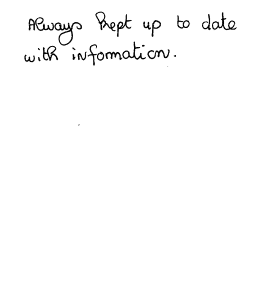 Always kept up to date
with information.